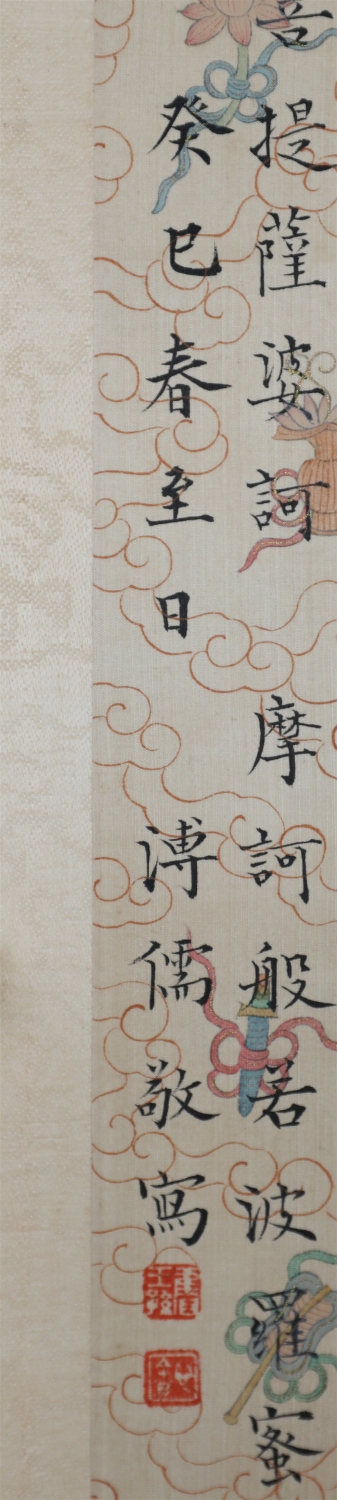 菩提薩婆訶　摩訶般若波羅蜜
癸巳春至日　溥儒敬寫